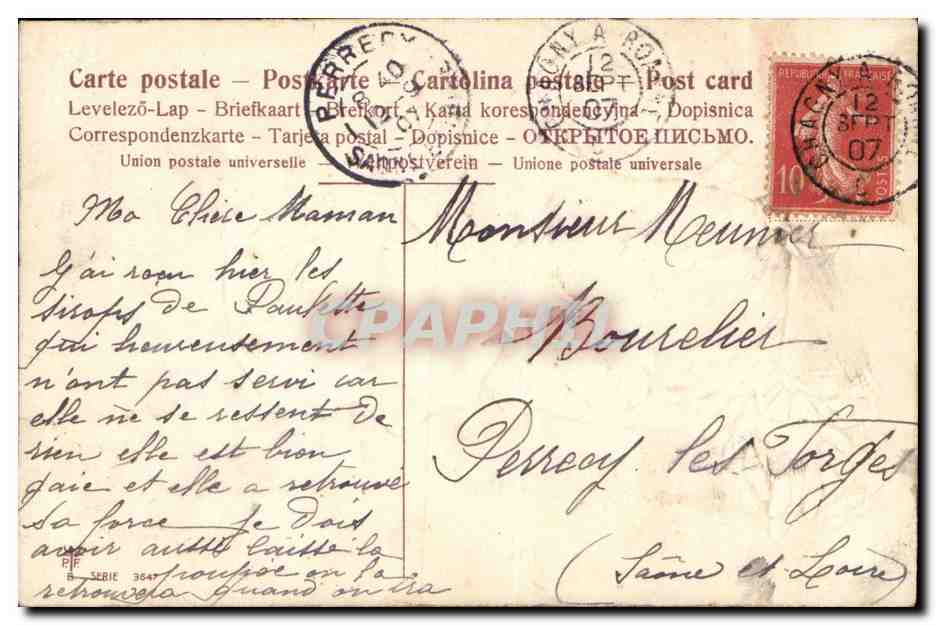 Carte postale - Postkarte - Cartolina postale - Post card
Levelező-Lap - Briefkaart - Brefkort - Karta korespondencyjna - Dopisnica
Correspondenzkarte - Tarjeta postal - Dopisnice - ОТКРЫТОЕ ПИСЬМО.
Union postale universelle - Weltpostverein - Unione postale universale
PERRECY
CHAGNY A ROANNE
12
SEPT
07
CHAGNY A ROANNE
12
SEPT
07
REPUBLIQUE FRANÇAISE
10
POSTES
Ma Chère Maman
J'ai reçu hier les
sirops de Paulette
qui heureusement
n'ont pas servi car
elle ne se ressent de
rien elle est bien
gaie et elle a retrouvé
sa force je dois
avoir aussi laissé la
poupée on la
retrouvera quand on ira
Monsieur Meunier
Bourelier
Perrecy les Forges
(Saône et Loire)
P.F.
B SERIE 3647
CPAPHIL